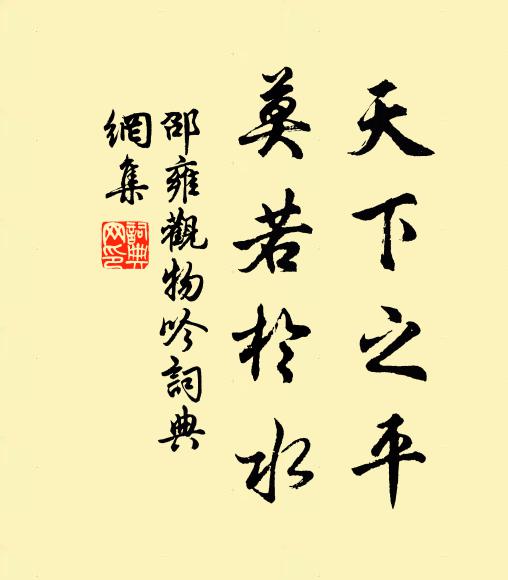 天下之平
莫若於水
邵雍觀物吟詞典
網集
詞典
网印